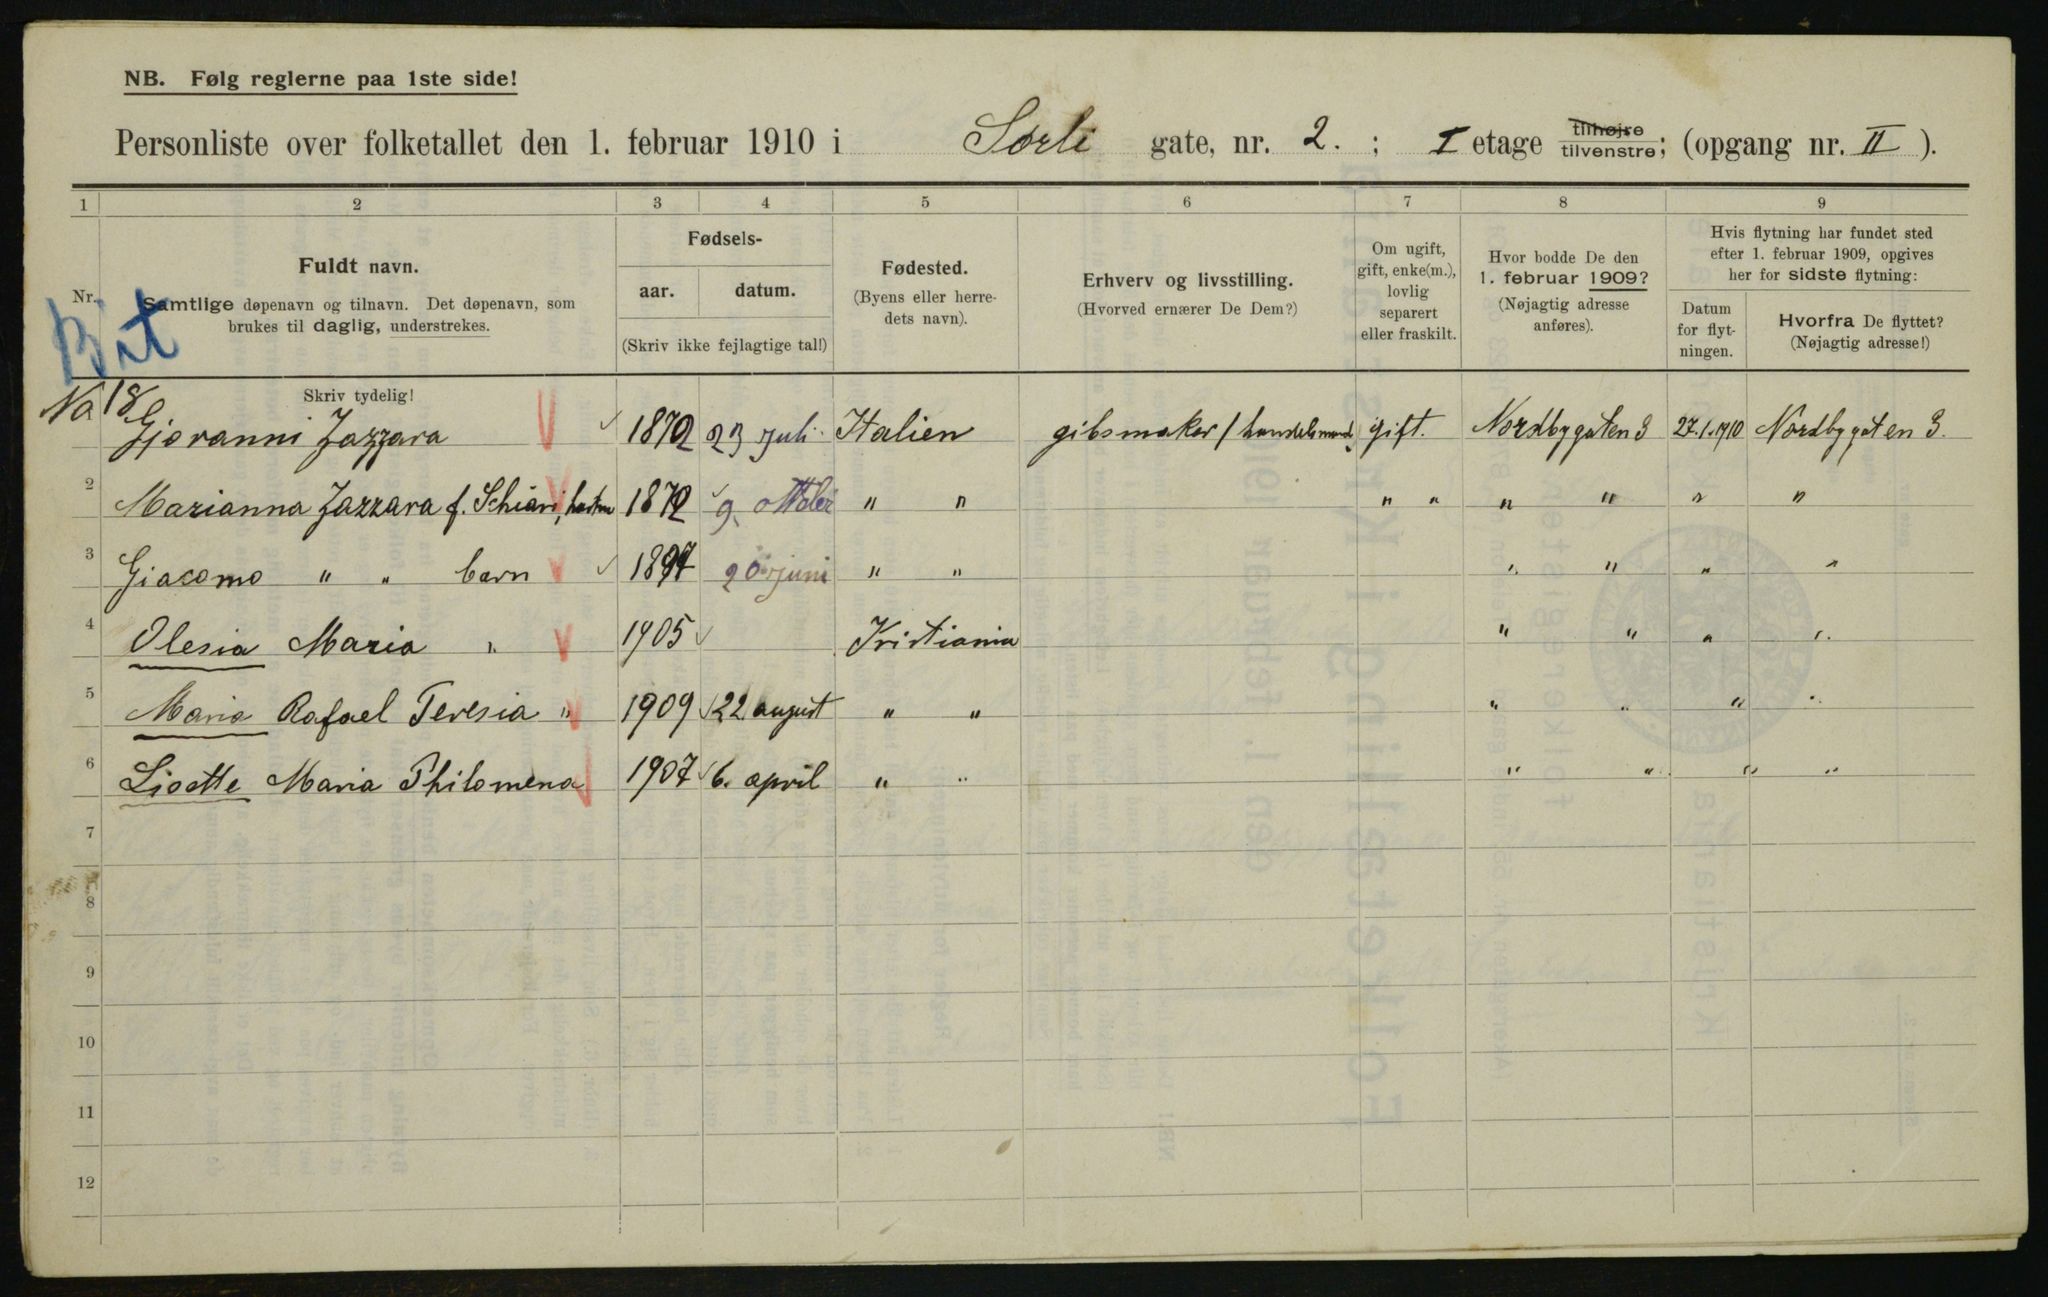 NB. Følg reglerne paa 1ste side!
Personliste over folketallet den 1. februar 1910 i Sorli gate, nr. 2. ; I etage tilhøjre tilvenstre; (opgang nr. II ).
1 2 3 4 5 6 7 8 9
Nr. Fuldt navn.
Samtlige døpenavn og tilnavn. Det døpenavn, som
brukes til daglig, understrekes.
Fødsels-
aar. datum.
(Skriv ikke fejlagtige tal!)
Fødested.
(Byens eller herre-
dets navn).
Erhverv og livsstilling.
(Hvorved ernærer De Dem?)
Om ugift,
gift, enke(m.),
lovlig
separert
eller fraskilt.
Hvor bodde De den
1. februar 1909?
(Nøjagtig adresse
anføres).
Hvis flytning har fundet sted
efter 1. februar 1909, opgives
her for sidste flytning:
Datum
for flyt-
ningen.
Hvorfra De flyttet?
(Nøjagtig adresse!)
Skriv tydelig!
No 18
1 Gjovanni Zazzara 1872 23 juli Italien gibsmaker / handelsmand gift. Nordbygaten 3 27.1.1910 Nordbygaten 3.
2 Marianna Zazzara f. Schiavi, hustru 1872 9. ottober " " " " " " " "
3 Giacomo " " barn 1897 20 juni " " " " " "
4 Olesia Maria " 1905 Kristiania " " " "
5 Maria Rafael Teresia " 1909 22 august " " " " " "
6 Lisette Maria Philomena 1907 6. april " " " " " "
7
8
9
10
11
12